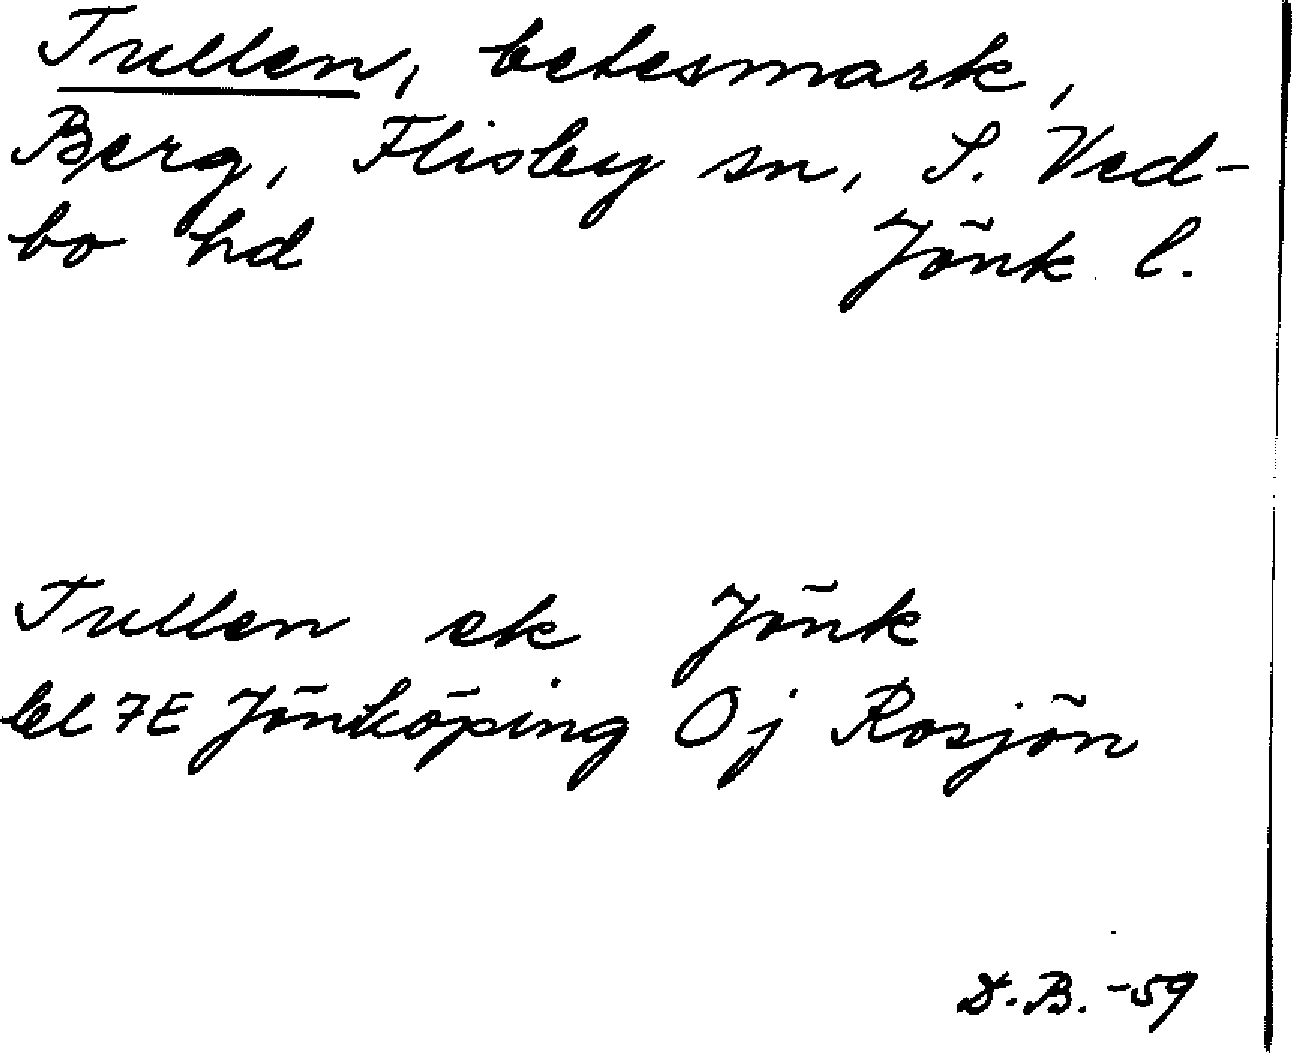 Tullen, betesmark,
Berg, Flisby sn, S. Ved-
bo hd Jönk. l.
Tullen ek Jönk
bl 7E Jönköping Oj Rosjön
D.B. -59